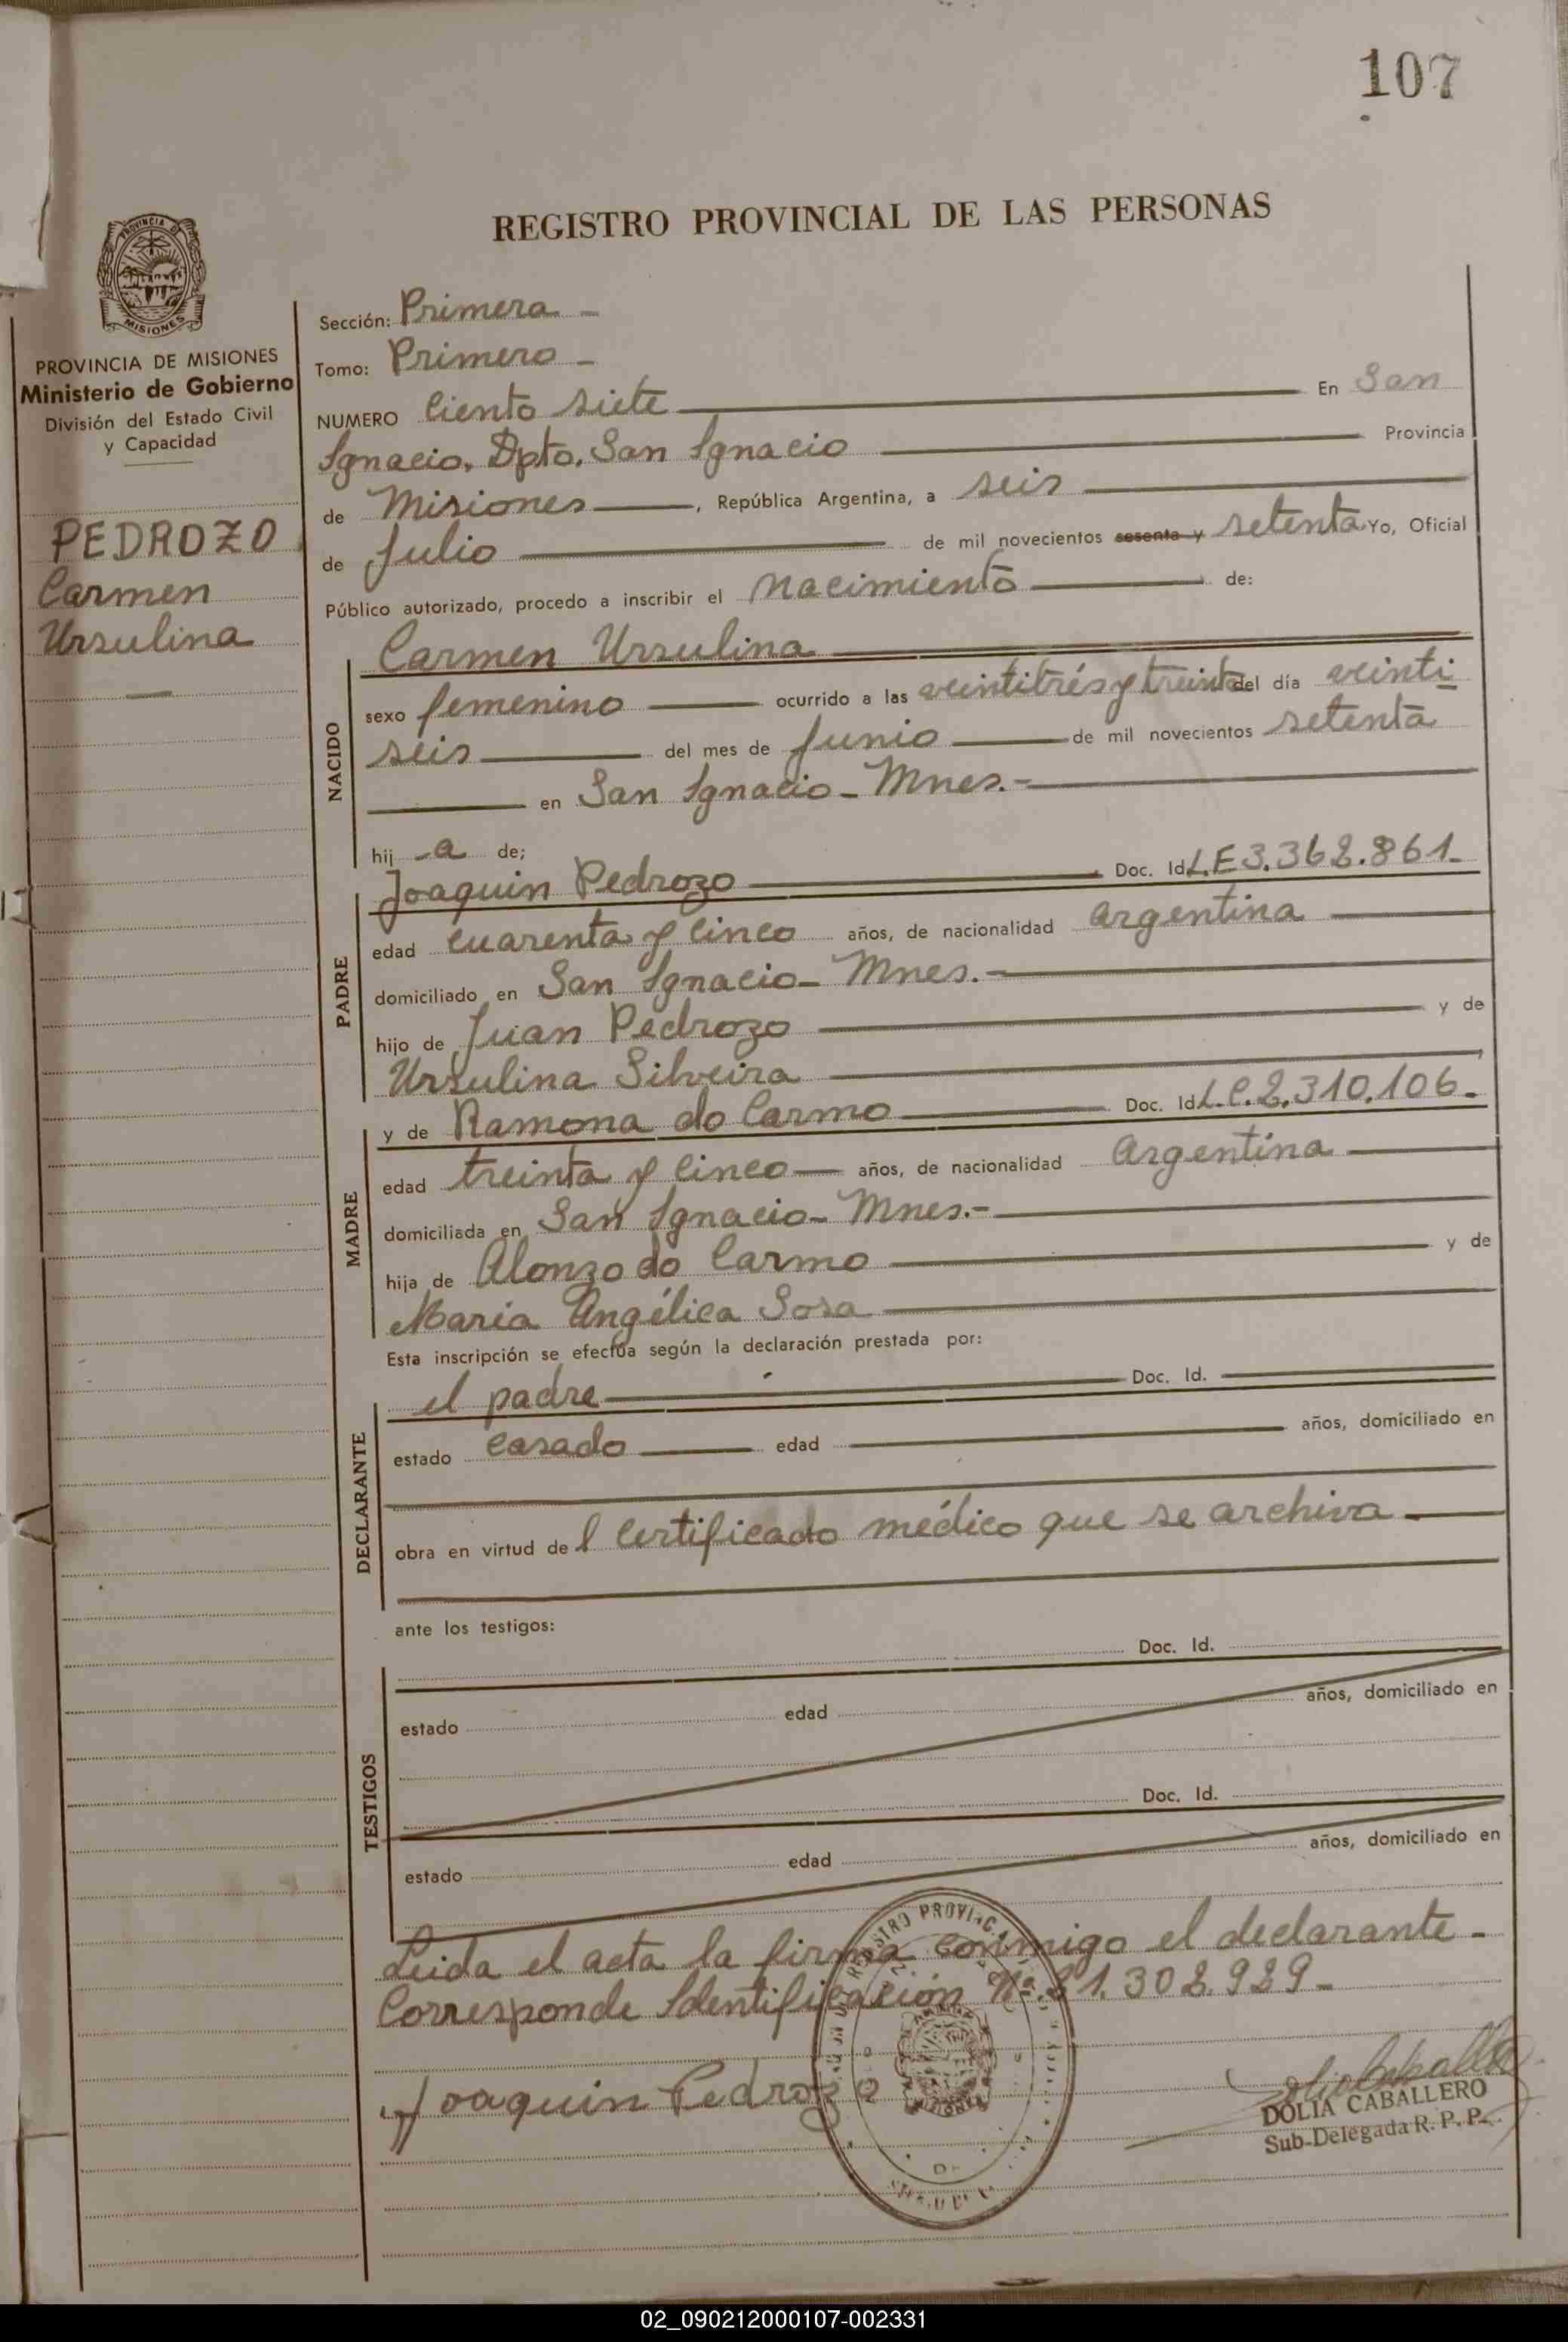 107
REGISTRO PROVINCIAL DE LAS PERSONAS
PROVINCIA DE
MISIONES
PROVINCIA DE MISIONES
Ministerio de Gobierno
División del Estado Civil
y Capacidad
PEDROZO
Carmen
Ursulina
Sección: Primera -
Tomo: Primero -
NUMERO Ciento siete En San
Ignacio, Dpto. San Ignacio Provincia
de Misiones, República Argentina, a seis
de Julio de mil novecientos sesenta y setenta Yo, Oficial
Público autorizado, procedo a inscribir el Nacimiento de:
NACIDO
Carmen Ursulina
sexo femenino ocurrido a las veintitrés y treinta del día veinti
seis del mes de Junio de mil novecientos setenta
en San Ignacio - Mnes.-
hij a de;
PADRE
Joaquin Pedrozo Doc. Id L.E 3.368.861.
edad cuarenta y cinco años, de nacionalidad Argentina
domiciliado en San Ignacio - Mnes.-
hijo de Juan Pedrozo y de
Ursulina Silveira
MADRE
y de Ramona do Carmo Doc. Id L.C. 2.310.106.
edad treinta y cinco años, de nacionalidad Argentina
domiciliada en San Ignacio - Mnes.-
hija de Alonzo do Carmo y de
Maria Angélica Sosa
Esta inscripción se efectúa según la declaración prestada por:
DECLARANTE
el padre Doc. Id.
estado casado edad años, domiciliado en
obra en virtud de l Certificado médico que se archiva
ante los testigos:
TESTIGOS
Doc. Id.
estado edad años, domiciliado en
Doc. Id.
estado edad años, domiciliado en
Leida el acta la firma conmigo el declarante -
Corresponde Identificación Nº 21.302.929 -
Joaquin Pedrozo
DOLIA CABALLERO
Sub-Delegada R. P. P.
02_090212000107-002331